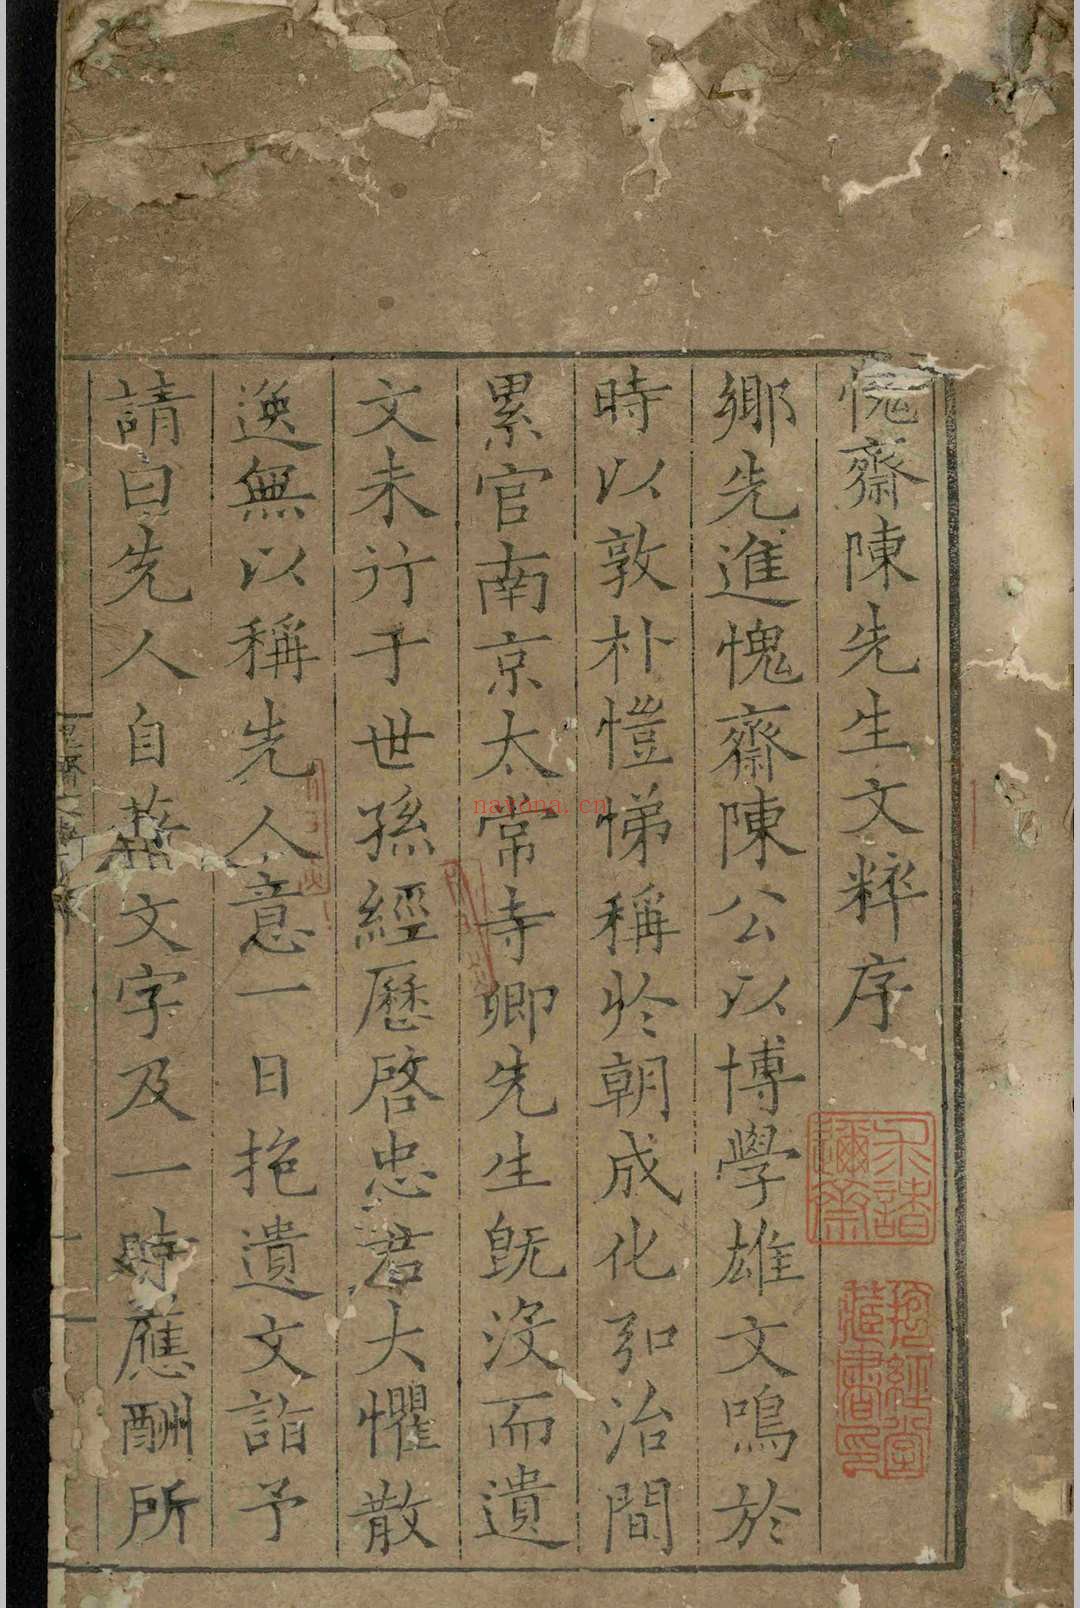 愧齋陳先生文粹序
鄉先進愧齋陳公以博學雄文鳴於
時以敦朴愷悌稱於朝成化弘治間
累官南京太常寺卿先生旣没而遺
文未行于世孫經歷啓忠君大懼散
逸無以稱先人意一日抱遺文詣予
請曰先人自藳文字及一時應酬所
抱經堂
藏書印
nayona.cn